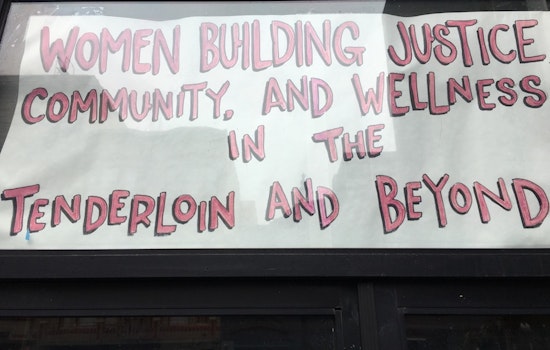 WOMEN BUILDING JUSTICE
COMMUNITY, AND WELLNESS
IN THE
TENDERLOIN AND BEYOND